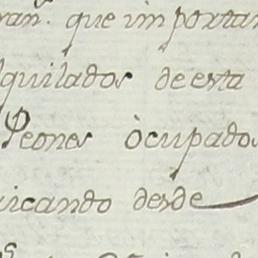 que importan
lquilados de esta
Peones òcupados
icando desde